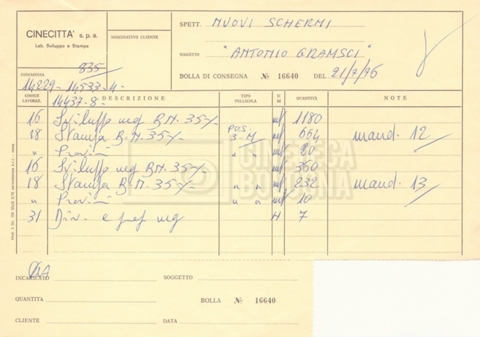 CINECITTÀ s.p.a.
Lab. Sviluppo e Stampa
NOMINATIVO CLIENTE
SPETT. NUOVI SCHERMI
SOGGETTO "ANTONIO GRAMSCI"
BOLLA DI CONSEGNA № 16640 DEL 21/7/76
835
14229-14533-4-
14437-8-
CODICE LAVORAZ. DESCRIZIONE TIPO PELLICOLA QUANTITÀ NOTE
16 Sviluppo neg B.N. 35 mt 1180
18 Stampa B.N. 35 POS. 3 M mt 664 mand. 12
" Provini " mt 20
16 Sviluppo neg B.N. 35 mt 360
18 Stampa B.N. 35 " " mt 232 mand. 13
" Provini " " mt 10
31 Div. e pref neg H 7
CINETECA
BOLOGNA
INCARICATO SOGGETTO
QUANTITA BOLLA № 16640
CLIENTE DATA